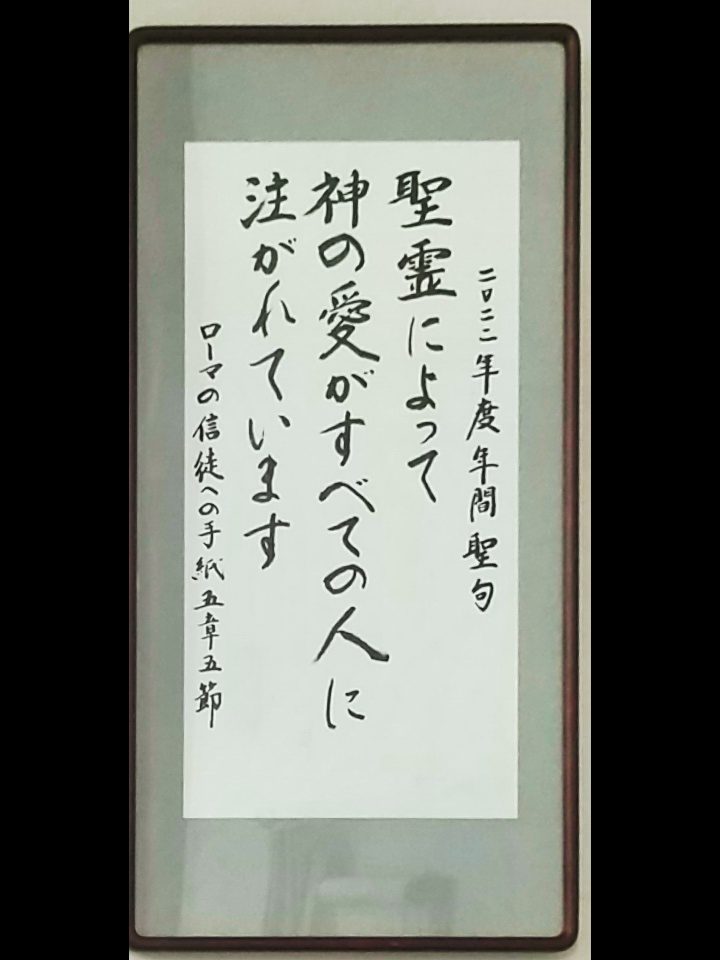 二〇二二年度年間聖句
聖霊によって
神の愛がすべての人に
注がれています
ローマの信徒への手紙五章五節